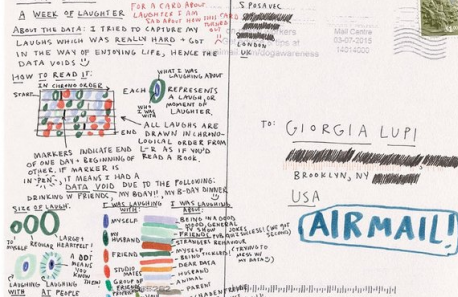 A WEEK OF LAUGHTER
FOR A CARD ABOUT
LAUGHTER I AM
SAD ABOUT HOW THIS CARD
TURNED OUT
ABOUT THE DATA: I TRIED TO CAPTURE MY
LAUGHS WHICH WAS REALLY HARD + GOT
IN THE WAY OF ENJOYING LIFE, HENCE THE
DATA VOIDS
HOW TO READ IT:
IN CHRONO ORDER
START
END
WHAT I WAS
LAUGHING ABOUT
EACH
REPRESENTS
A LAUGH, OR
MOMENT OF
LAUGHTER.
WHO I WAS WITH
ALL LAUGHS ARE
DRAWN IN CHRONO-
LOGICAL ORDER FROM
L-R AS IF YOU'D
READ A BOOK.
MARKERS INDICATE END
OF ONE DAY + BEGINNING OF
NEXT. IF MARKER IS
IN "PEN", IT MEANS I HAD A
DATA VOID DUE TO THE FOLLOWING:
DRINKING W FRIENDS, MY BDAY!!, MY B-DAY DINNER
SIZE OF LAUGH:
TO MYSELF
REGULAR
LARGE!
HEARTFELT!
LAUGHING WITH
LAUGHING AT PEOPLE
A DOT MEANS YOU KNOW THEM
I WAS LAUGHING WITH:
MYSELF
MY HUSBAND
FRIEND
STUDIO MATES
GROUP OF FRIENDS
I WAS LAUGHING ABOUT:
BEING IN A GOOD MOOD, GENERAL
TV SHOW
FRIENDS, JOKES
STRANGERS BEHAVIOUR
MYSELF
BEING TICKLED
DEAR DATA
HUSBAND
ANIMAL
PARENT
(TRYING TO MESS W MY DATA)
S POSAVEC
LONDON
UK
Mail Centre
03-07-2015
14014000
TO:
GIORGIA LUPI
BROOKLYN, NY
USA
AIRMAIL!